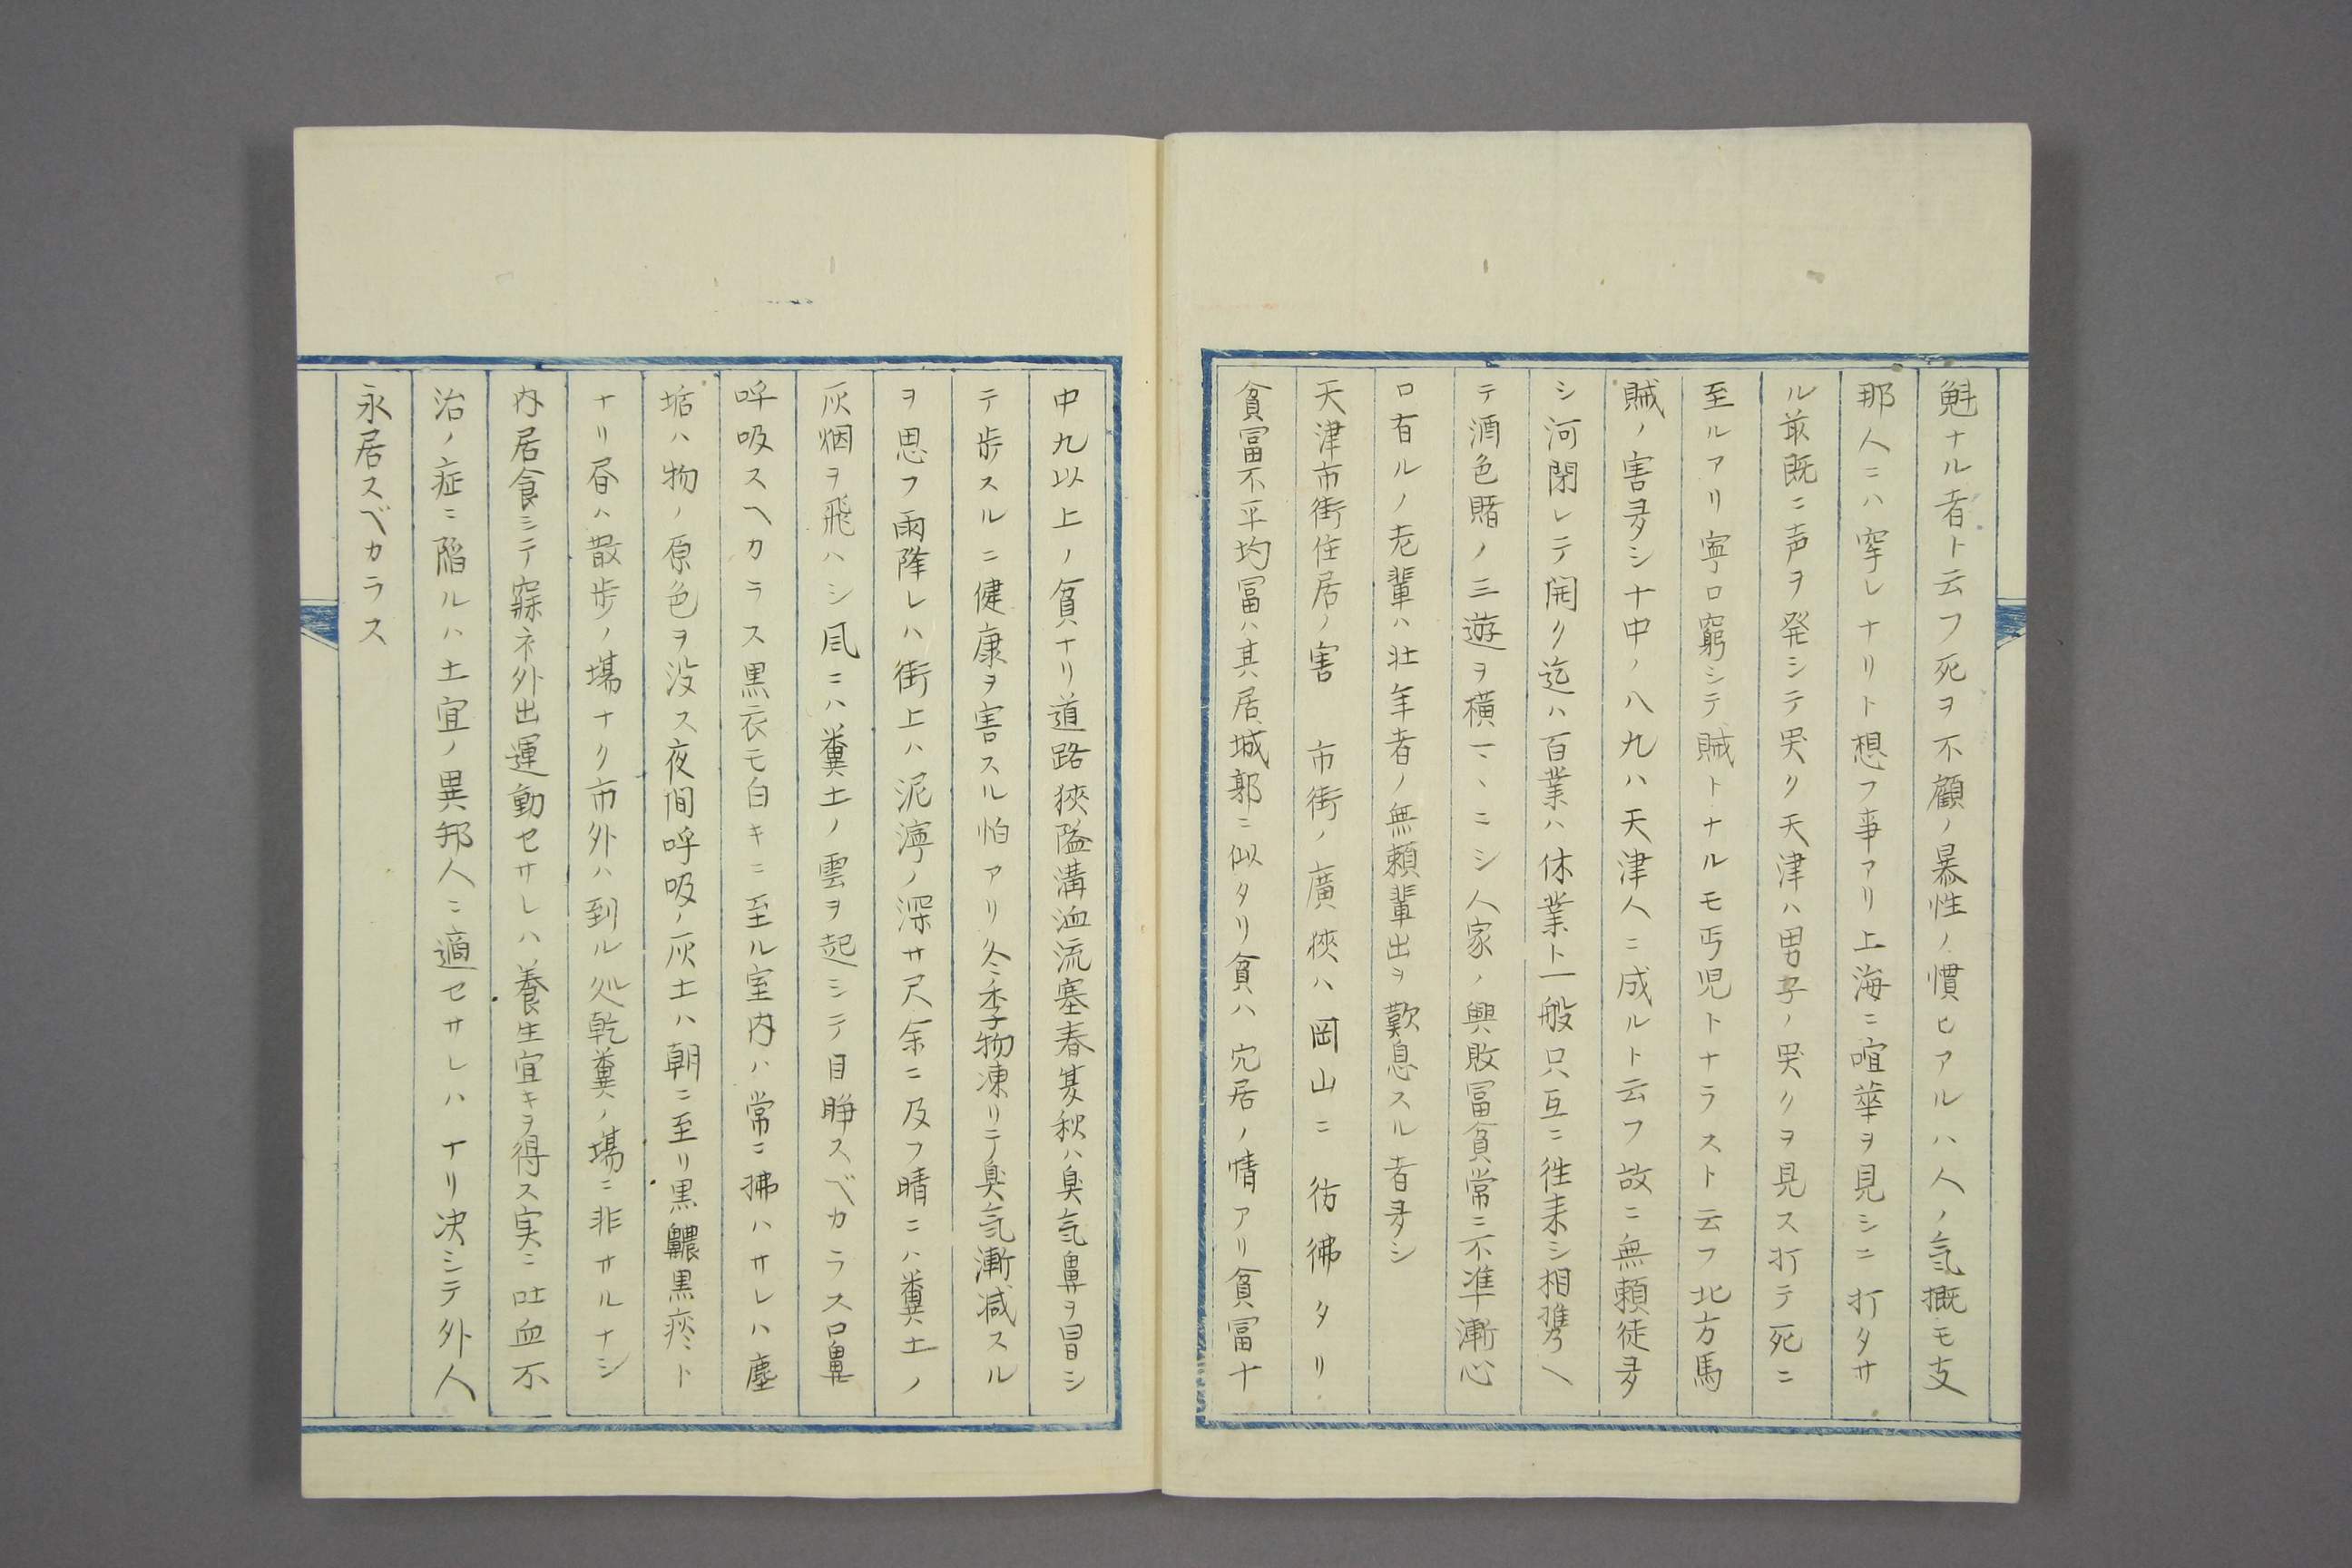 魁ナル者ト云フ死ヲ不顧ノ暴性ノ慣ヒアルハ人ノ氣概モ支
那人ニハ穼レナリト想フ事アリ上海ニ喧華ヲ見シニ打タサ
ル前既ニ声ヲ発シテ哭ク天津ハ男子ノ哭クヲ見ス打テ死ニ
至ルアリ寧ロ窮シテ賊トナルモ丐児トナラスト云フ北方馬
賊ノ害多シ十中ノ八九ハ天津人ニ成ルト云フ故ニ無頼徒多
シ河閉レテ開ク迄ハ百業ハ休業ト一般只互ニ徃来シ相携ヘ
テ酒色賭ノ三遊ヲ横マヽニシ人家ノ興敗冨貧常ニ不準漸心
ロ有ルノ老輩ハ壮年者ノ無頼輩出ヲ歎息スル者多シ
天津市街住居ノ害　市街ノ廣狹ハ岡山ニ彷彿タリ
貧冨不平均冨ハ其居城郭ニ似タリ貧ハ穴居ノ情アリ貧冨十
中九以上ノ貧ナリ道路狹隘溝洫流塞春夏秋ハ臭氣鼻ヲ冒シ
テ歩スルニ健康ヲ害スル怕アリ冬季物凍リテ臭氣漸减スル
ヲ思フ雨降レハ街上ハ泥濘ノ深サ尺余ニ及フ晴ニハ糞土ノ
灰烟ヲ飛ハシ風ニハ糞土ノ雲ヲ起シテ目睁スベカラス口鼻
呼吸スヘカラス黒衣モ白キニ至ル室内ハ常ニ拂ハサレハ塵
垢ハ物ノ原色ヲ没ス夜間呼吸ノ灰土ハ朝ニ至リ黒齈黒痰ト
ナリ昼ハ散歩ノ塲ナク市外ハ到ル処乾糞ノ塲ニ非サルナシ
内居食シテ寐ネ外出運動セサレハ養生宜キヲ得ス実ニ吐血不
治ノ症ニ陥ルハ土宜ノ異邦人ニ適セサレハナリ决シテ外人
永居スベカラス